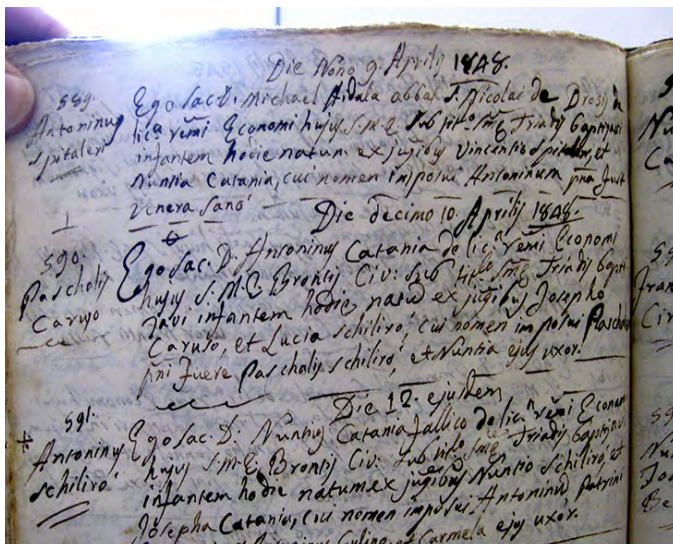 Die Nono 9. Aprilis 1848.
589.
Antoninus
Spitaleri
Ego Sac. D. Michael Aidala abbas S. Nicolai de
lica remi Economi hujus S.M.E. Sub titlo Sme Triadis baptizavi
infantem hodie natum ex jugibus Vincentio Spitaleri, et
Nuntia Catania, cui nomen imposui Antoninum pna fuit
Venera Sano
Die decimo 10. Aprilis 1848.
590.
Paschalis
Caruso
Ego Sac: D. Antoninus Catania de lica remi Economi
hujus S.M.E. Brontis Civ: Sub titlo Sme Triadis bapti
zavi infantem hodie natu ex jugibus Josepho
Caruso, et Lucia Schilirò, cui nomen imposui
pni fuere Paschalis Schilirò, et Nuntia ejus uxor.
Die 12. ejusdem
591.
Antoninus
Schilirò
Ego Sac: D. Nuntius Catania Gallico de lica remi Econom
hujus S.M.E. Brontis Civ: Sub titlo Sme Triadis baptizavi
infantem hodie natum ex jugibus Nuntio Schilirò, et
Josepha Catania, cui nomen imposui Antoninu Patrini
et Carmela ejus uxor.